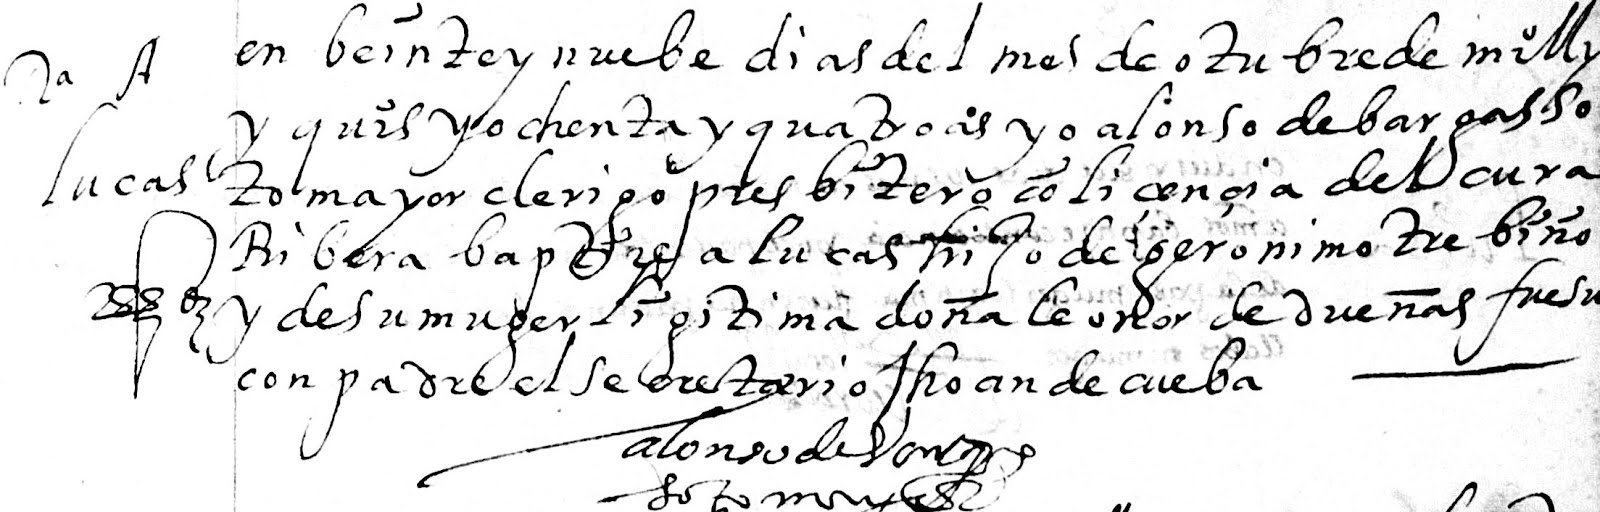 en beinte y nuebe dias del mes de otubre de mill y
y quis y ochenta y quatro as yo alonso de bargas so
lucas
to mayor clerigo presbitero cō licençia del cura
Ribera baptize a lucas hijo de geronimo trebiño
y de su muger ligitima doña leonor de dueñas fue su
conpadre el secretario Jhoan de cueba
alonso de Vargas
soto mayor